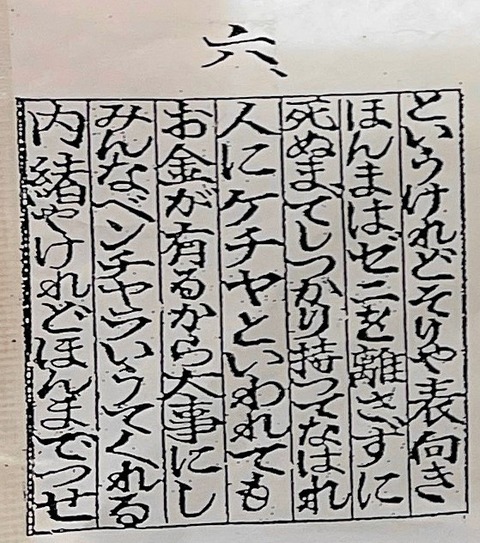 六、
というけれどそりや表向き
ほんまはゼニを離さずに
死ぬまでしつかり持つてなはれ
人にケチヤといわれても
お金が有るから大事にし
みんなベンチヤラいうてくれる
内緒やけれどほんまでつせ